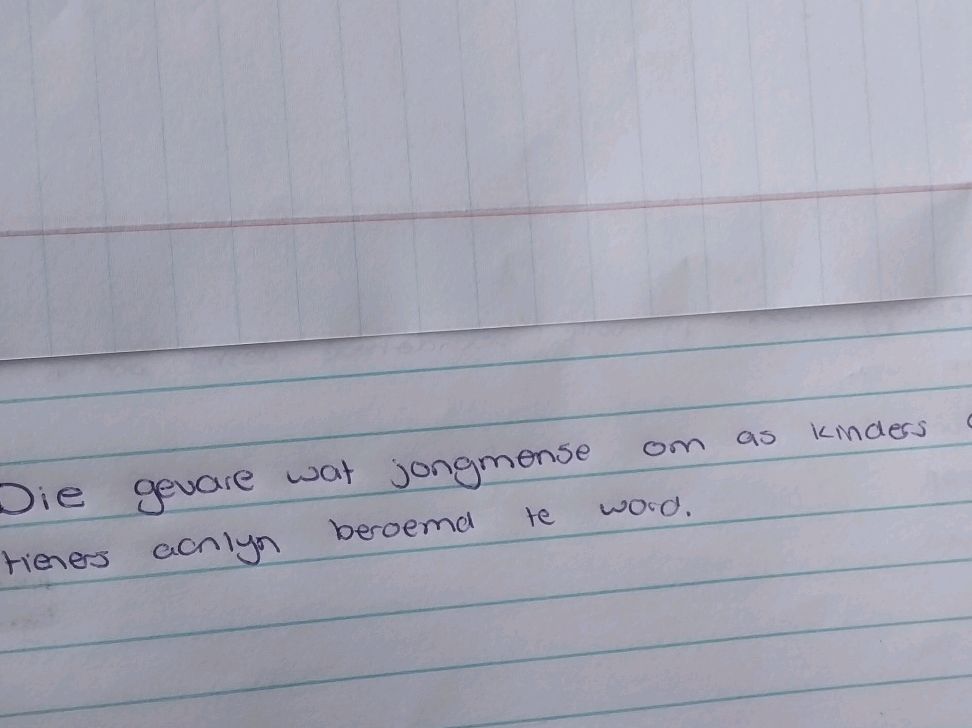 Die gevare wat jongmense om as kinders
tieners aanlyn beroemd te word.